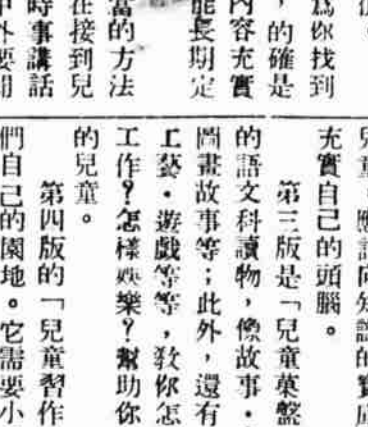 為你找到
，的確是
內容充實
能長期定
當的方法
在接到兒
時事講話
中外要聞
兒童，應該向知識的寶庫
充實自己的頭腦。
第三版是「兒童菓盤
的語文科讀物，像故事・
圖畫故事等；此外，還有
工藝・遊戲等等，敎你怎
工作？怎樣娛樂？幫助你
的兒童。
第四版的「兒童習作
們自己的園地。它需要小